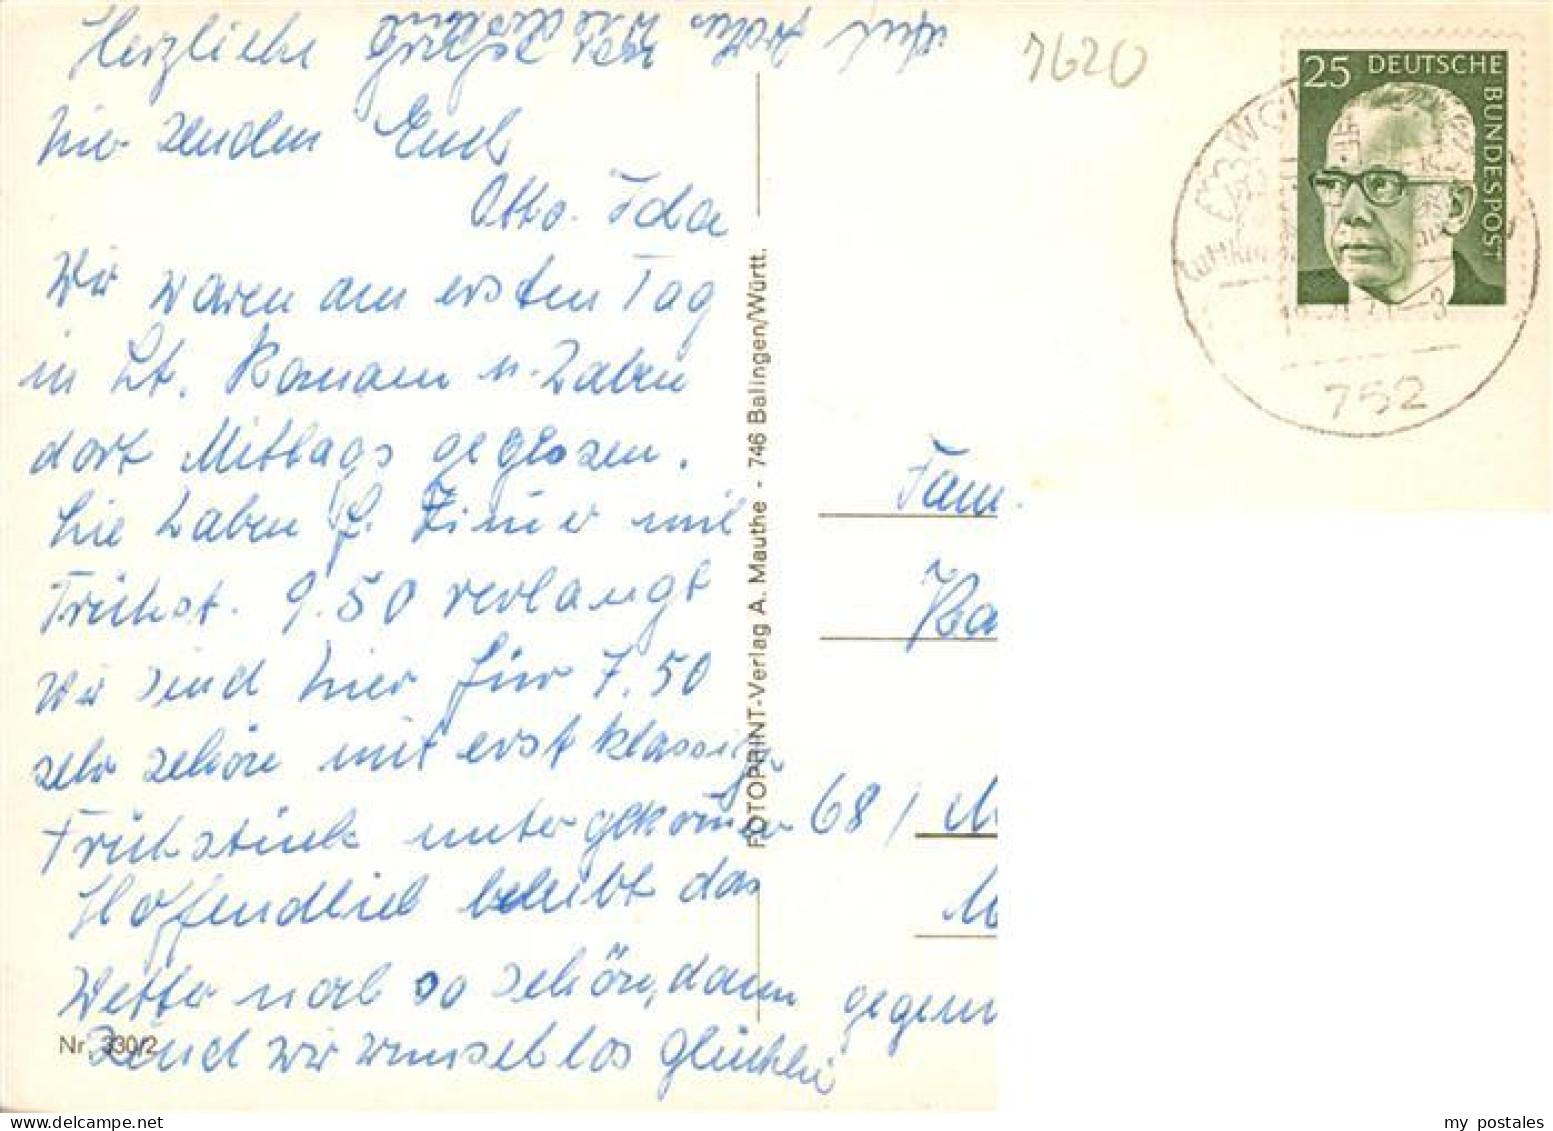 Herzliche Grüße von
hier senden Euch
Otto. Ida
Wir waren am ersten Tag
in St. Roman u. haben
dort Mittags gegessen.
Sie haben f. Zimer mit
Frühst. 9.50 verlangt
Wir sind hier für 7.50
sehr schön mit erst klassig
Frühstück untergekommen
Hoffendlich bleibt das
Wetter noch so schön, dann gegen
sind wir wunschlos Glücklich
auf frohes Wiedersehn
7620
25 DEUTSCHE BUNDESPOST
WOL
752
FOTOPRINT-Verlag A. Mauthe - 746 Balingen/Württ.
Fam.
Ha
68 / M
M
Nr. 330/2
my postales